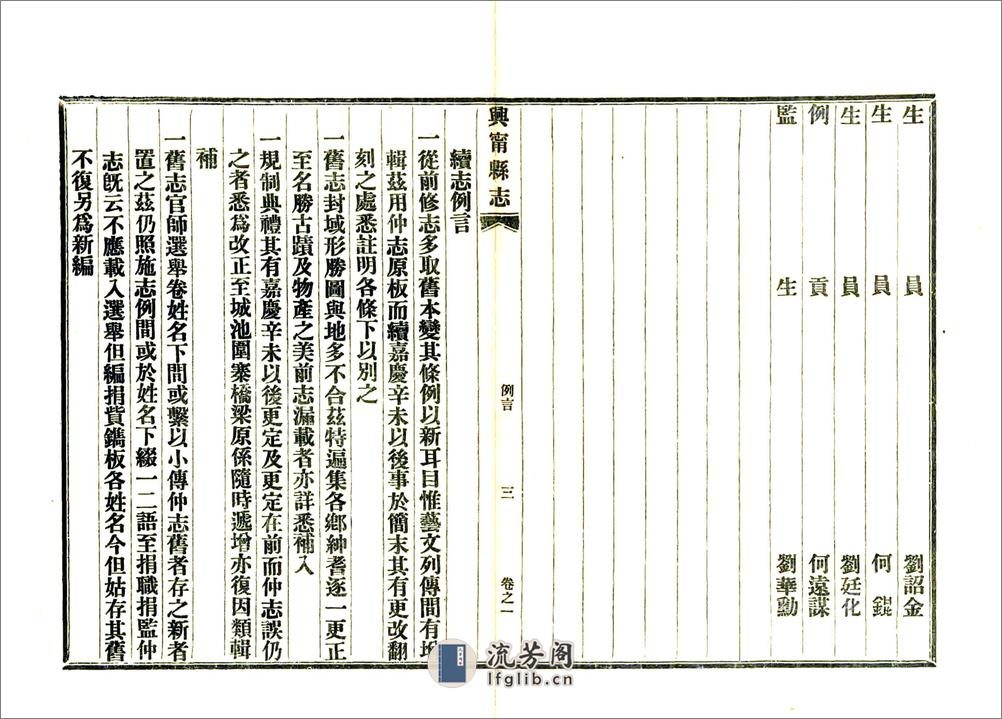 生員 劉詔金
生員 何錕
生員 劉廷化
例貢 何遠謀
監生 劉華勳
興甯縣志
例言
三
卷之一
續志例言
一從前修志多取舊本變其條例以新耳目惟藝文列傳間有增
輯茲用仲志原板而續嘉慶辛未以後事於簡末其有更改翻
刻之處悉註明各條下以別之
一舊志封域形勝圖與地多不合茲特遍集各鄉紳耆逐一更正
至名勝古蹟及物產之美前志漏載者亦詳悉補入
一規制典禮其有嘉慶辛未以後更定及更定在前而仲志誤仍
之者悉爲改正至城池圍寨橋梁原係隨時遞增亦復因類輯
補
一舊志官師選舉卷姓名下間或繫以小傳仲志舊者存之新者
置之茲仍照施志例間或於姓名下綴一二語至捐職捐監仲
志既云不應載入選舉但編捐貲鐫板各姓名今但姑存其舊
不復另爲新編
流芳阁
lfglib.cn